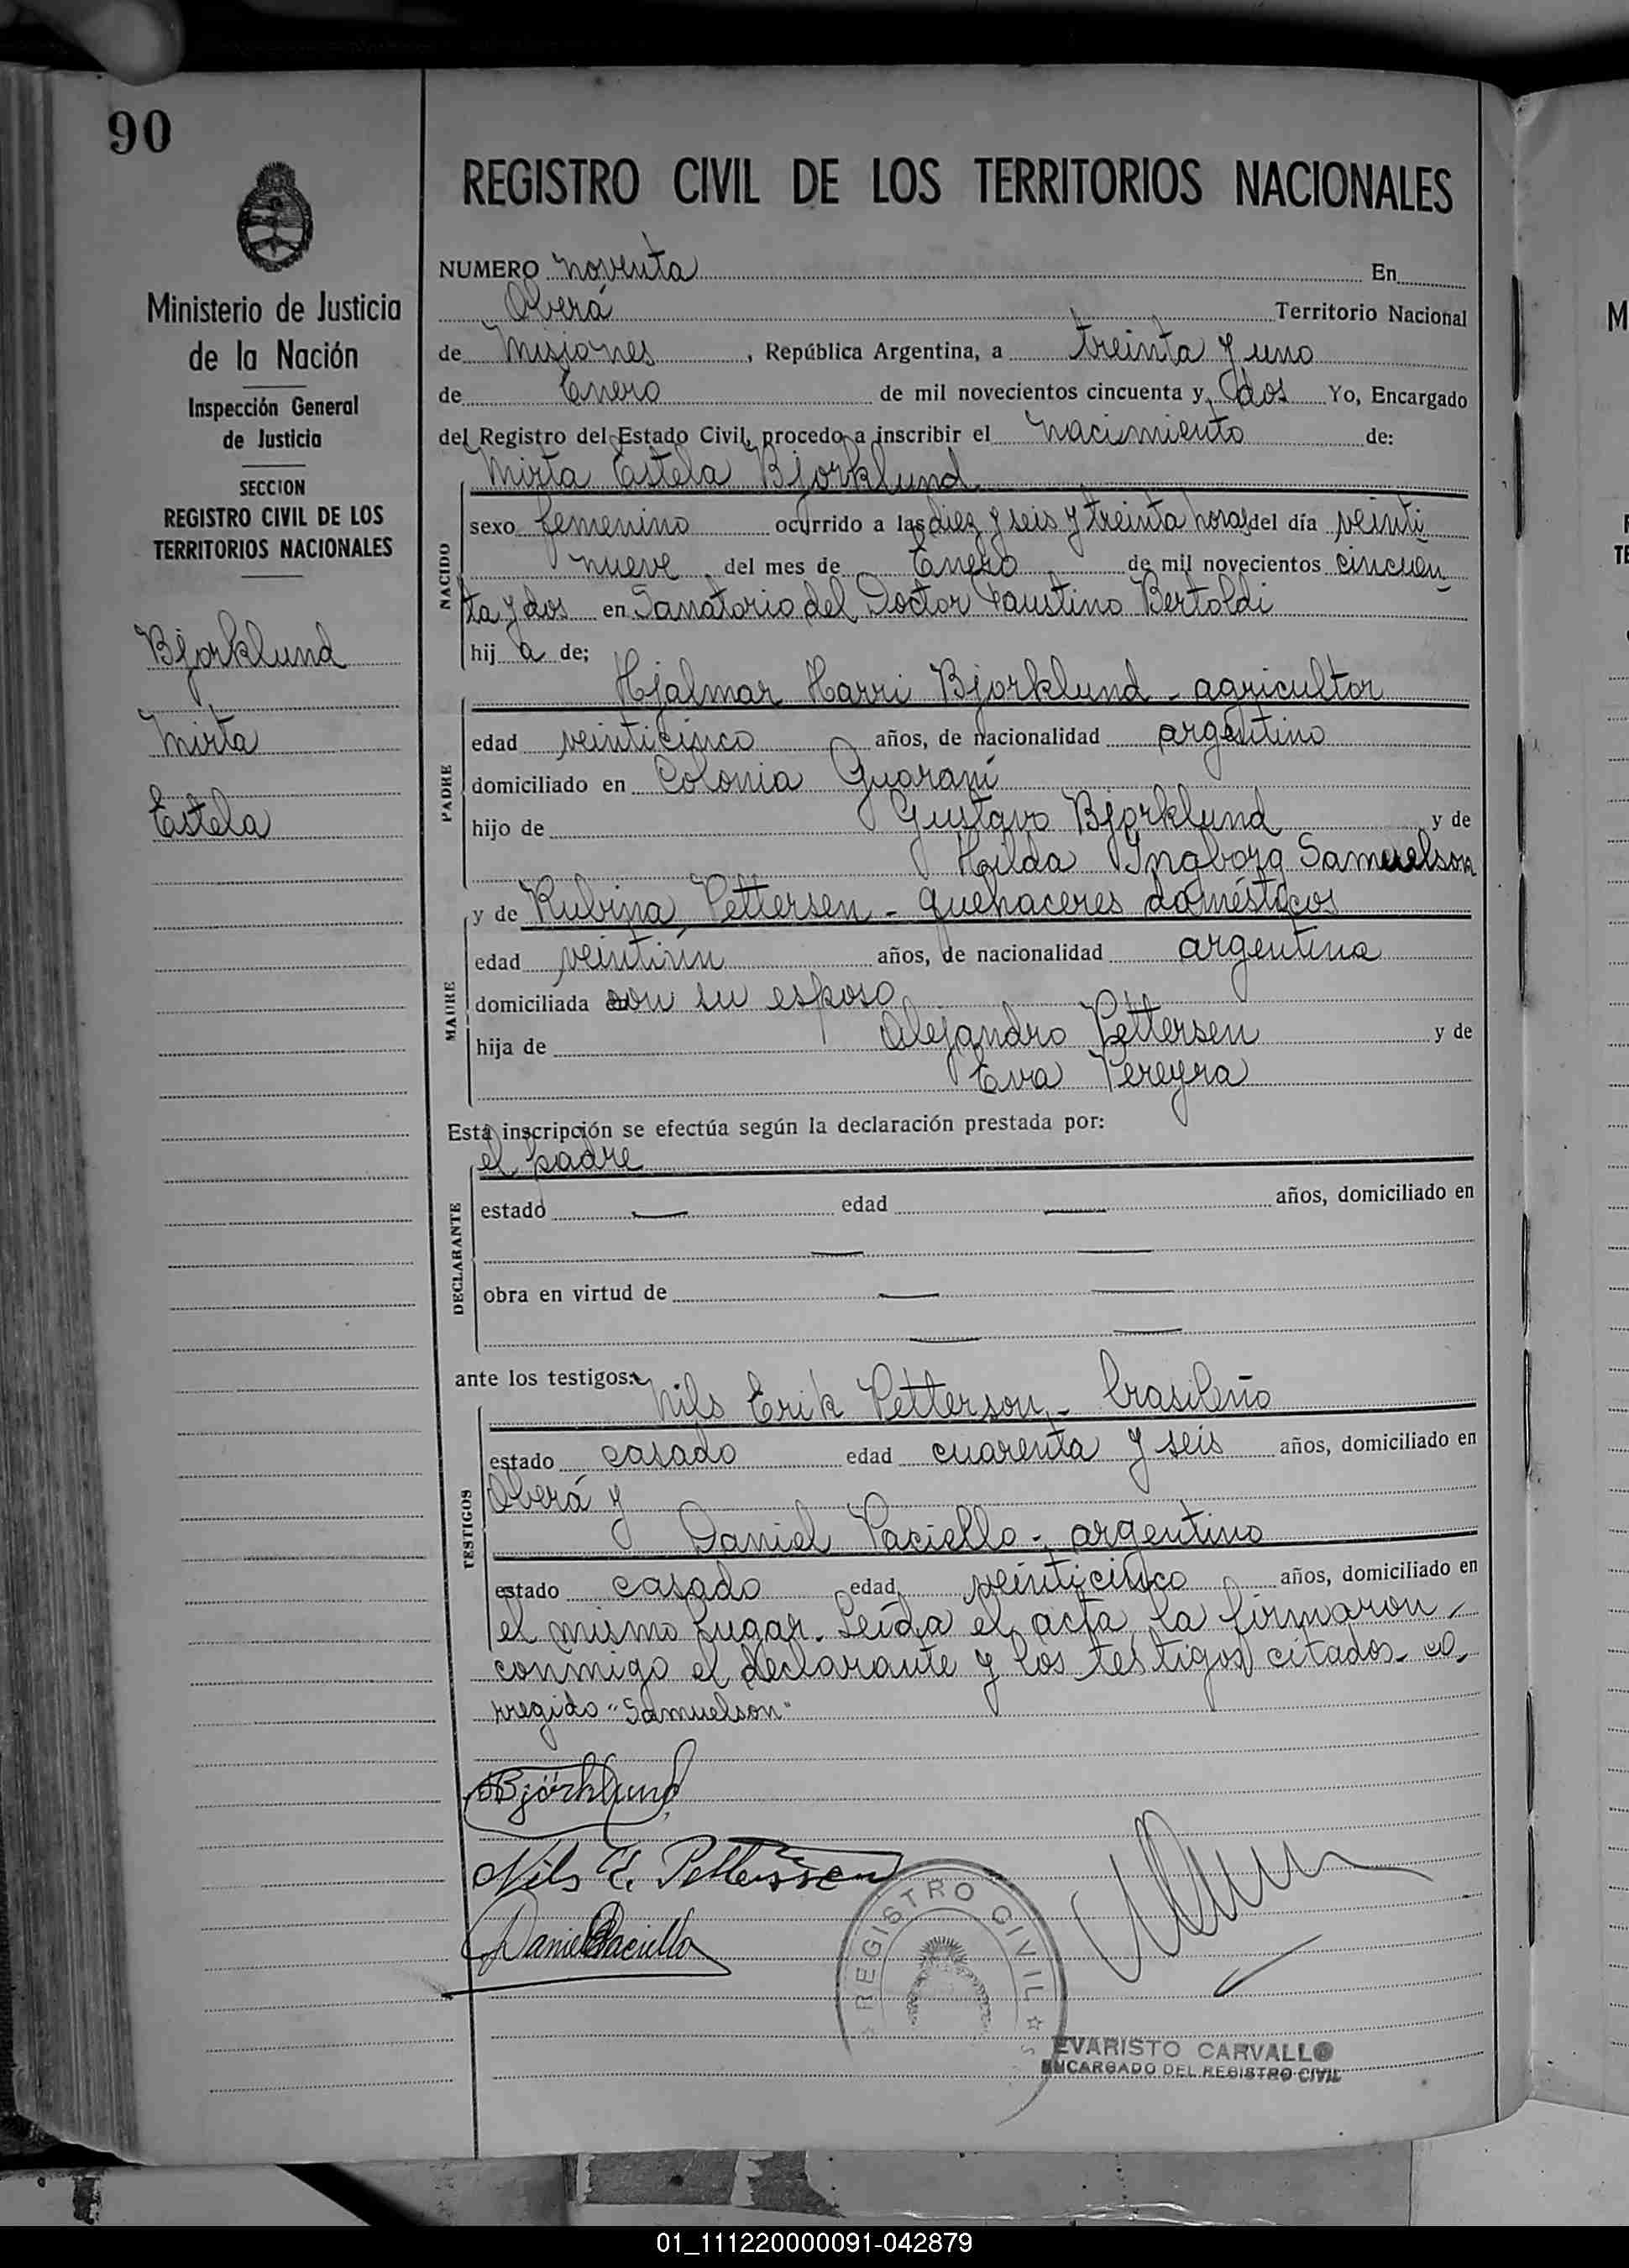 90
REGISTRO CIVIL DE LOS TERRITORIOS NACIONALES
Ministerio de Justicia
de la Nación
Inspección General
de Justicia
SECCION
REGISTRO CIVIL DE LOS
TERRITORIOS NACIONALES
Bjorklund
Mirta
Estela
NUMERO noventa En
Oberá Territorio Nacional
de Misiones, República Argentina, a treinta y uno
de Enero de mil novecientos cincuenta y dos Yo, Encargado
del Registro del Estado Civil, procedo a inscribir el nacimiento de:
Mirta Estela Bjorklund
NACIDO
sexo femenino ocurrido a las diez y seis y treinta horas del día veinti
nueve del mes de Enero de mil novecientos cincuen
ta y dos en Sanatorio del Doctor Faustino Bertoldi
hij a de;
PADRE
Hjalmar Harri Bjorklund - agricultor
edad veinticinco años, de nacionalidad argentino
domiciliado en Colonia Guaraní
hijo de Gustavo Bjorklund y de
Hilda Yngborg Samuelson
MADRE
y de Rubina Pettersen - quehaceres domésticos
edad veintiún años, de nacionalidad argentina
domiciliada con su esposo
hija de Alejandro Pettersen y de
Eva Pereyra
Esta inscripción se efectúa según la declaración prestada por:
el padre
DECLARANTE
estado — edad — años, domiciliado en
— —
obra en virtud de — —
— —
ante los testigos:
TESTIGOS
Nils Erik Petterson - brasileño
estado casado edad cuarenta y seis años, domiciliado en
Oberá y
Daniel Paciello - argentino
estado casado edad veinticinco años, domiciliado en
el mismo lugar. Leída el acta la firmaron
conmigo el declarante y los testigos citados - co
rregido "Samuelson"
Björklund
Nils E. Pettersson
Daniel Paciello
REGISTRO CIVIL
EVARISTO CARVALLO
ENCARGADO DEL REGISTRO CIVIL
01_111220000091-042879